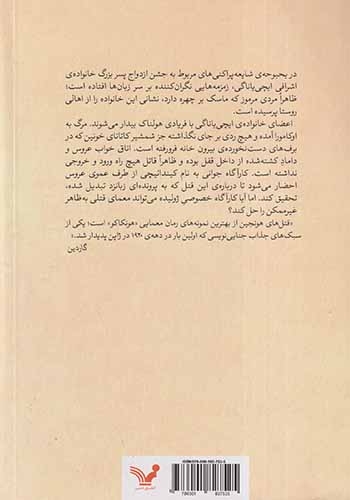 در بحبوحه‌ی شایعه‌پراکنی‌های مربوط به جشن ازدواج پسر بزرگ خانواده‌ی
اشرافی ایچی‌یاناگی، زمزمه‌هایی نگران‌کننده بر سر زبان‌ها افتاده است؛
ظاهراً مردی مرموز که ماسک بر چهره دارد، نشانی این خانواده را از اهالی
روستا پرسیده است.
اعضای خانواده‌ی ایچی‌یاناگی با فریادی هولناک بیدار می‌شوند. مرگ به
اوکامورا آمده و هیچ ردی بر جای نگذاشته جز شمشیر کاتانای خونین که در
برف‌های دست‌نخورده‌ی بیرون خانه فرورفته است. اتاق خواب عروس و
دامادِ کشته‌شده از داخل قفل بوده و ظاهراً قاتل هیچ راه ورود و خروجی
نداشته است. کارآگاه جوانی به نام کیندائیچی از طرف عموی عروس
احضار می‌شود تا درباره‌ی این قتل که به پرونده‌ای زبانزد تبدیل شده،
تحقیق کند. اما آیا کارآگاه خصوصی ژولیده می‌تواند معمای قتلی به‌ظاهر
غیرممکن را حل کند؟
«قتل‌های هونجین از بهترین نمونه‌های رمان معمایی «هونکاکو» است؛ یکی از
سبک‌های جذاب جنایی‌نویسی که اولین بار در دهه‌ی ۱۹۲۰ در ژاپن پدیدار شد.»
گاردین